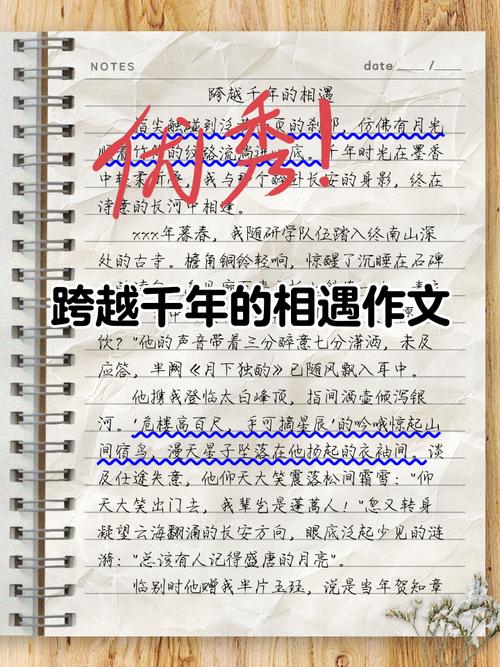 NOTES
date____/__
跨越千年的相遇
指尖触碰到泛黄书页的刹那，仿佛有月光
顺着竹简的纹路流淌进心底。千年时光在墨香
中轻柔折叠，我与那个醉卧长安的身影，终在
诗意的长河中相逢。
优秀！
xxx年暮春，我随研学队伍踏入终南山深
处的古寺。檐角铜铃轻响，惊醒了沉睡在石碑
跨越千年的相遇作文
饮？"他的声音带着三分醉意七分潇洒，未及
应答，半阙《月下独酌》已随风飘入耳中。
他携我登临太白峰顶，指间酒壶倾泻银
河。'危楼高百尺，手可摘星辰'的吟哦惊起山
间宿鸟，漫天星子坠落在他扬起的衣袖间。谈
及仕途失意，他仰天大笑震落松间霜雪："仰
天大笑出门去，我辈岂是蓬蒿人！"忽又转身
凝望云海翻涌的长安方向，眼底泛起少见的涟
漪："总该有人记得盛唐的月亮"。
临别时他赠我半片玉珏，说是当年贺知章